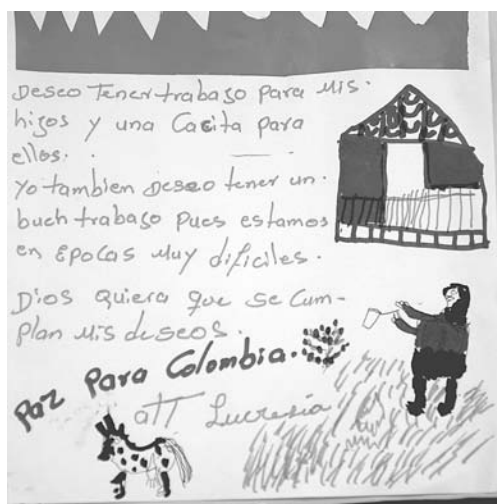 Deseo Tener trabaso para mis.
hizos y una Cacita para
ellos.
Yo tambien deseo tener un.
buen trabaso pues estamos
en Epocas muy dificiles.
Dios quiera que se Cum-
plan mis deseos.
Paz Para Colombia.
att Lucresia